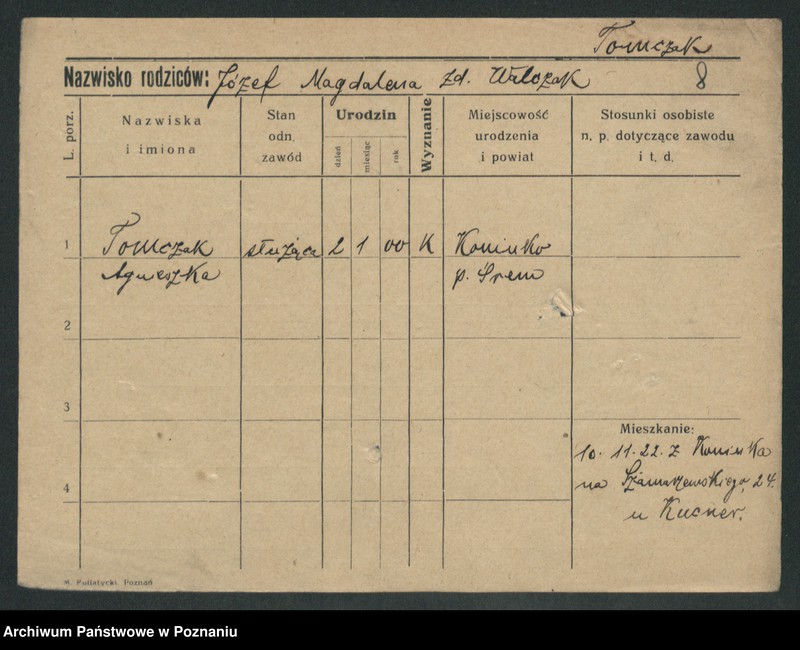 Tomczak
Nazwisko rodziców: Józef Magdalena zd. Walczak 8
L. porz.
Nazwiska
i imiona
Stan
odn.
zawód
Urodzin
dzień
miesiąc
rok
Wyznanie
Miejscowość
urodzenia
i powiat
Stosunki osobiste
n. p. dotyczące zawodu
i t. d.
1 Tomczak służąca 2 1 00 K Koninko
Agnieszka p. Śrem
2
3
Mieszkanie:
10. 11. 22. z Koninka
4 na Szamarzewskiego 24.
u Kucner.
M. Putiatycki, Poznań
Archiwum Państwowe w Poznaniu